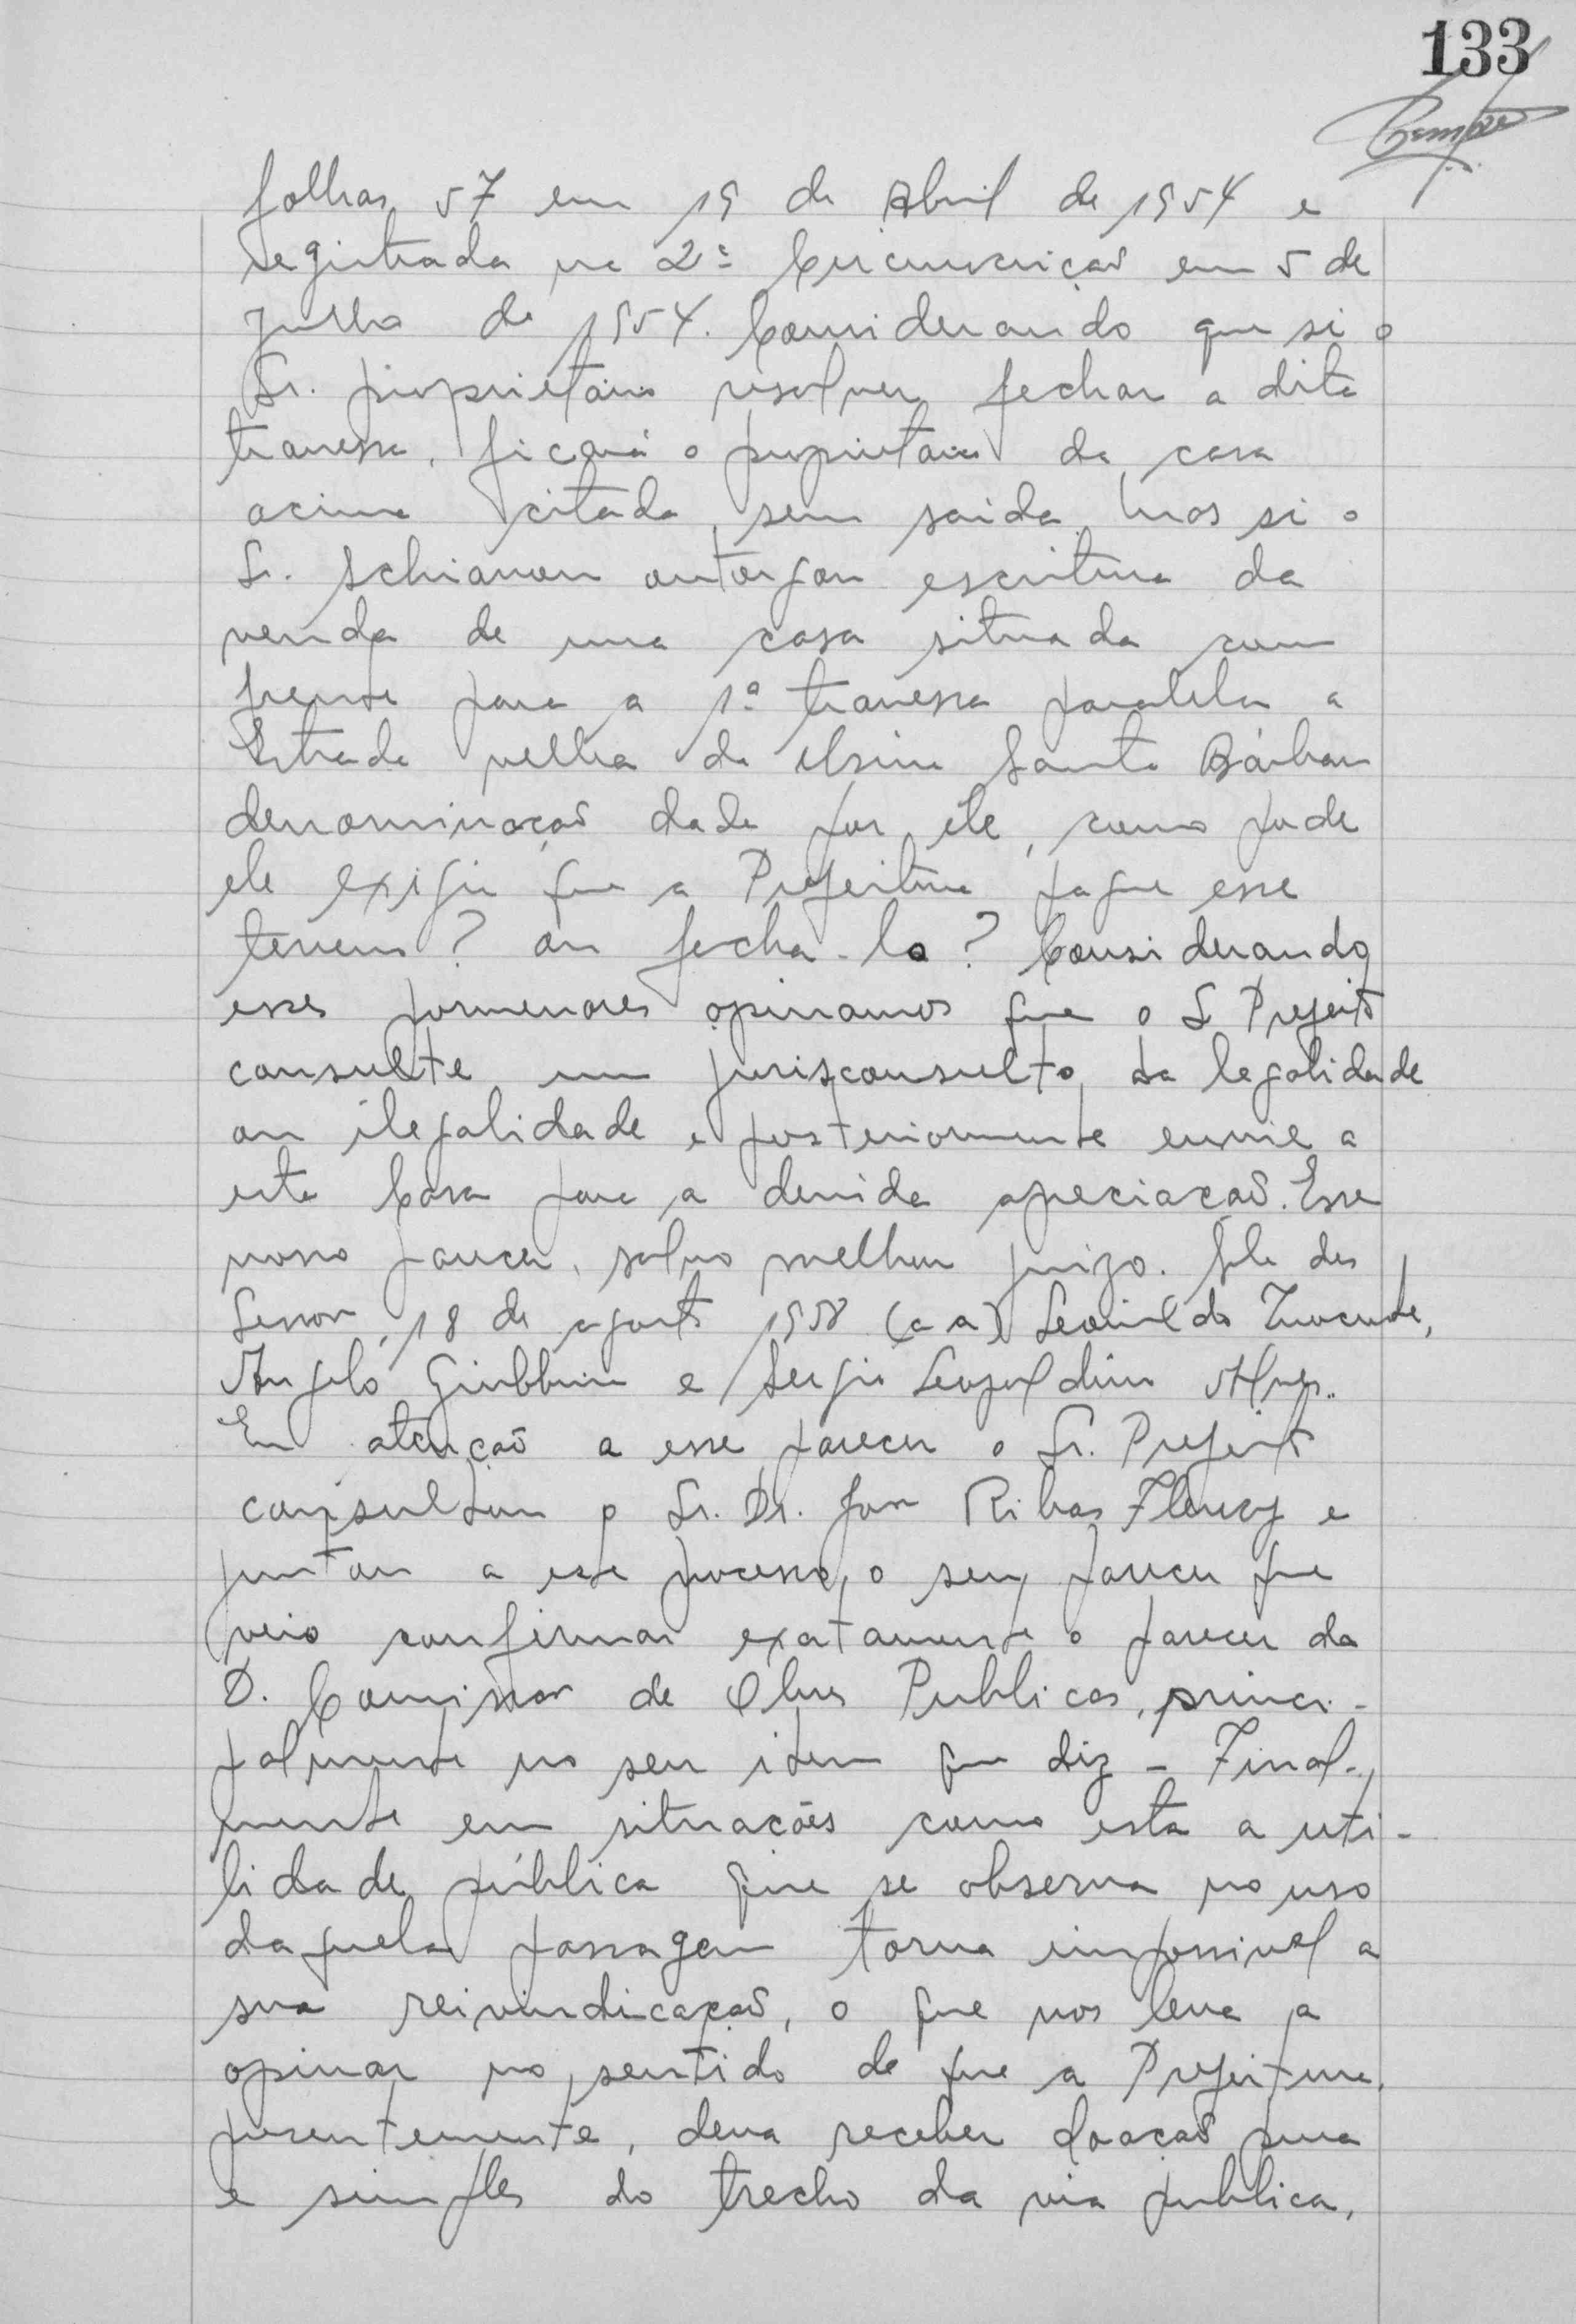 133
folhas 57 em 19 de Abril de 1954 e
registrada na 2ª Circunscrição em 5 de
Julho de 1954. Considerando que si o
Sr. proprietário resolver fechar a dita
travessa, ficará o proprietario da casa
acima citada, sem saida, mas si o
Sr. Schiavon outorgou escritura da
venda de uma casa situada com
frente para a 1ª travessa paralela a
Estrada velha da Usina Santa Bárbara
denominação dada por ele, como pode
ele exigir que a Prefeitura pague esse
terreno? ou fecha-lo? Considerando
esses pormenores opinamos que o S Prefeito
consulte um jurisconsulto da legalidade
ou ilegalidade e posteriormente envie a
esta Casa para a devida apreciação. Esse
nosso parecer, salvo melhor juizo. Sala das
Sessor, 18 de agosto 1958 (a a)
Angelo Giubbina e Sergio Leopoldino Alves.
Em atenção a esse parecer o Sr. Prefeito
consultou o Sr. Dr. José Ribas Fleury e
juntou a este processo o seu parecer que
veio confirmar exatamente o parecer da
D. Comissão de Obras Publicas, princi-
palmente no seu item que diz - Final-
mente em situações como esta a uti-
lidade pública que se observa no uso
daquela passagem torna impossivel a
sua reivindicação, o que nos leva a
opinar no sentido de que a Prefeitura,
prudentemente, deva receber doação pura
e simples do trecho da via publica,